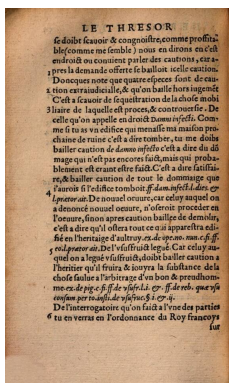 LE THRESOR
se doibt scauoir & congnoistre, comme proffita-
ble (comme me semble) nous en dirons en c'est
endroict ou conuient parler des cautions, car a-
pres la demande offerte se bailloit icelle caution.
Doncques note que quatre especes sont de cau-
tion extraiudicialle, & qu'on baille hors iugemẽt
C'est a scauoir de sequestration de la chose mobi
3 liaire de laquelle est proces, & controuersie. De
celle qu'on appelle en droict Damni infecti. Com-
me si tu as vn edifice qui menasse ma maison pro-
chaine de ruine c'est a dire tomber, tu me doibs
bailler caution de damno infecto c'est a dire du dõ
mage qui n'est pas encores faict, mais qui proba-
blement est craint estre faict. C'est a dire satisfai-
re, & bailler caution de tout le dommage que
i'aurois si l'edifice tomboit ff. dam. infect. l. dies. &
4 l. prætor ait. De nouuel oeuure, car celuy auquel on
a denoncé nouuel oeuure, n'oseroit proceder en
l'oeuure, sinon apres caution baillee de demolir,
c'est a dire qu'il ostera tout ce qui apparestra edi-
fié en l'heritage d'aultruy. ex. de ope. no. nun. c. fi. ff.
5 eo. l. prætor ait. De l'vsufruict legué. Car celuy au-
quel on a legué vsufruict, doibt bailler caution a
l'heritier qu'il fruira & iouyra la substance de la
chose saulue a l'arbitrage d'vn bon & preudhom-
me. ex. de pig. c. fi. ff. de vsufr. l. i. & ff. de reb. quæ vsu
consum. per to. insti. de vsufruc. § i. & ij.
6 De l'interrogatoire qu'on faict a l'vne des parties
tu en verras en l'ordonnance du Roy francoys
sur